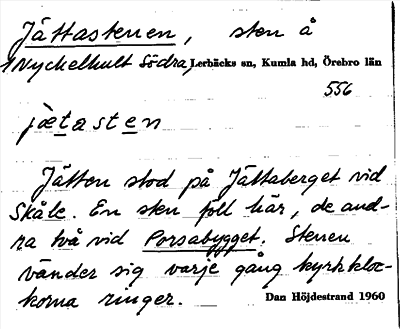 Jättastenen, sten å
Nyckelhult Södra, Lerbäcks sn, Kumla hd, Örebro län
556
jɛ̀tasten
Jätten stod på Jättaberget vid
Skåle. En sten föll här, de and-
ra två vid Porsabygget. Stenen
vänder sig varje gång kyrkkloc-
korna ringer. Dan Höjdestrand 1960